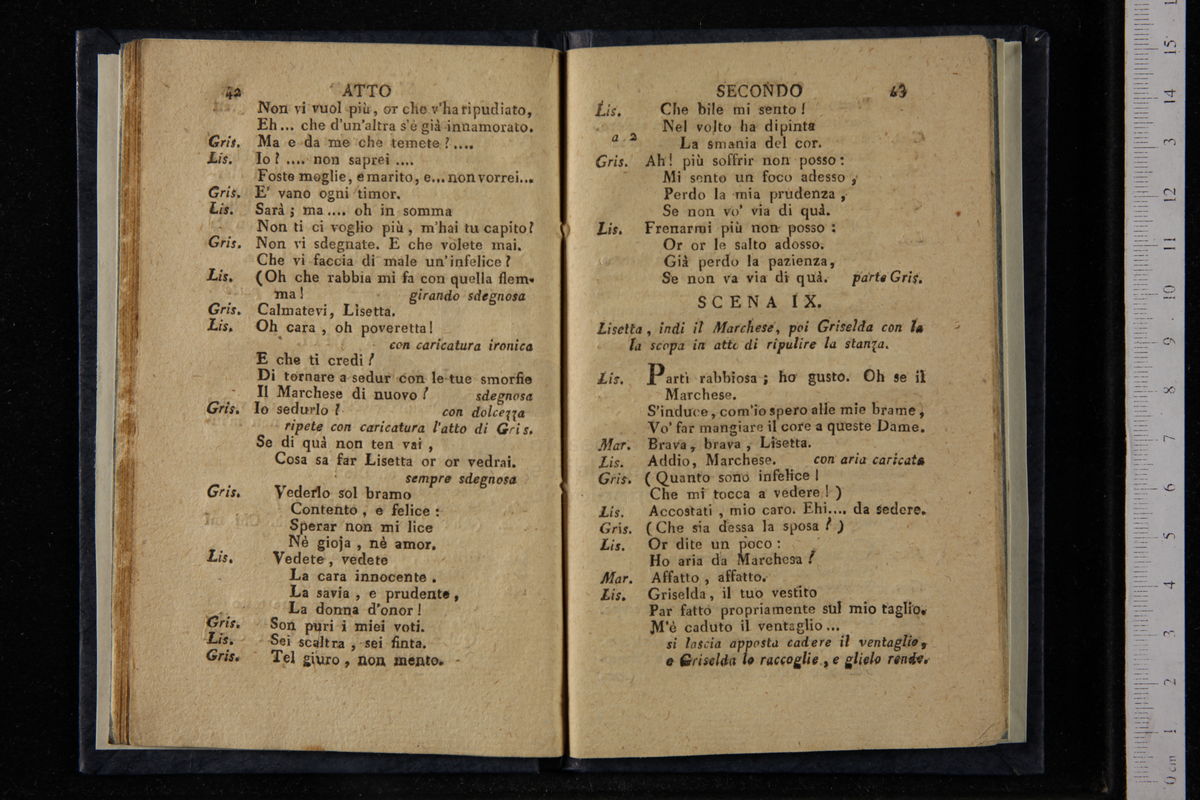 42 ATTO
Non vi vuol più, or che v'ha ripudiato,
Eh... che d'un'altra s'è già innamorato.
Gris. Ma e da me che temete?....
Lis. Io? .... non saprei ....
Foste moglie, e marito, e... non vorrei...
Gris. E' vano ogni timor.
Lis. Sarà; ma.... oh in somma
Non ti ci voglio più, m'hai tu capito?
Gris. Non vi sdegnate. E che volete mai.
Che vi faccia di male un'infelice?
Lis. (Oh che rabbia mi fa con quella flem-
ma! girando sdegnosa
Gris. Calmatevi, Lisetta.
Lis. Oh cara, oh poveretta!
con caricatura ironica
E che ti credi?
Di tornare a sedur con le tue smorfie
Il Marchese di nuovo? sdegnosa
Gris. Io sedurlo? con dolcezza
ripete con caricatura l'atto di Gris.
Se di quà non ten vai,
Cosa sa far Lisetta or or vedrai.
sempre sdegnosa
Gris. Vederlo sol bramo
Contento, e felice:
Sperar non mi lice
Nè gioja, nè amor.
Lis. Vedete, vedete
La cara innocente.
La savia, e prudente,
La donna d'onor!
Gris. Son puri i miei voti.
Lis. Sei scaltra, sei finta.
Gris. Tel giuro, non mento.
SECONDO 43
Lis. Che bile mi sento!
Nel volto ha dipinta
a 2 La smania del cor.
Gris. Ah! più soffrir non posso:
Mi sento un foco adesso,
Perdo la mia prudenza,
Se non vo' via di quà.
Lis. Frenarmi più non posso:
Or or le salto adosso.
Già perdo la pazienza,
Se non va via di quà. parte Gris.
SCENA IX.
Lisetta, indi il Marchese, poi Griselda con la
la scopa in atto di ripulire la stanza.
Lis. Partì rabbiosa; ho gusto. Oh se il
Marchese.
S'induce, com'io spero alle mie brame,
Vo' far mangiare il core a queste Dame.
Mar. Brava, brava, Lisetta.
Lis. Addio, Marchese. con aria caricata
Gris. (Quanto sono infelice!
Che mi tocca a vedere!)
Lis. Accostati, mio caro. Ehi.... da sedere.
Gris. (Che sia dessa la sposa?)
Lis. Or dite un poco:
Ho aria da Marchesa?
Mar. Affatto, affatto.
Lis. Griselda, il tuo vestito
Par fatto propriamente sul mio taglio.
M'è caduto il ventaglio...
si lascia apposta cadere il ventaglio,
e Griselda lo raccoglie, e glielo rende.
0 cm 1 2 3 4 5 6 7 8 9 10 11 12 13 14 15